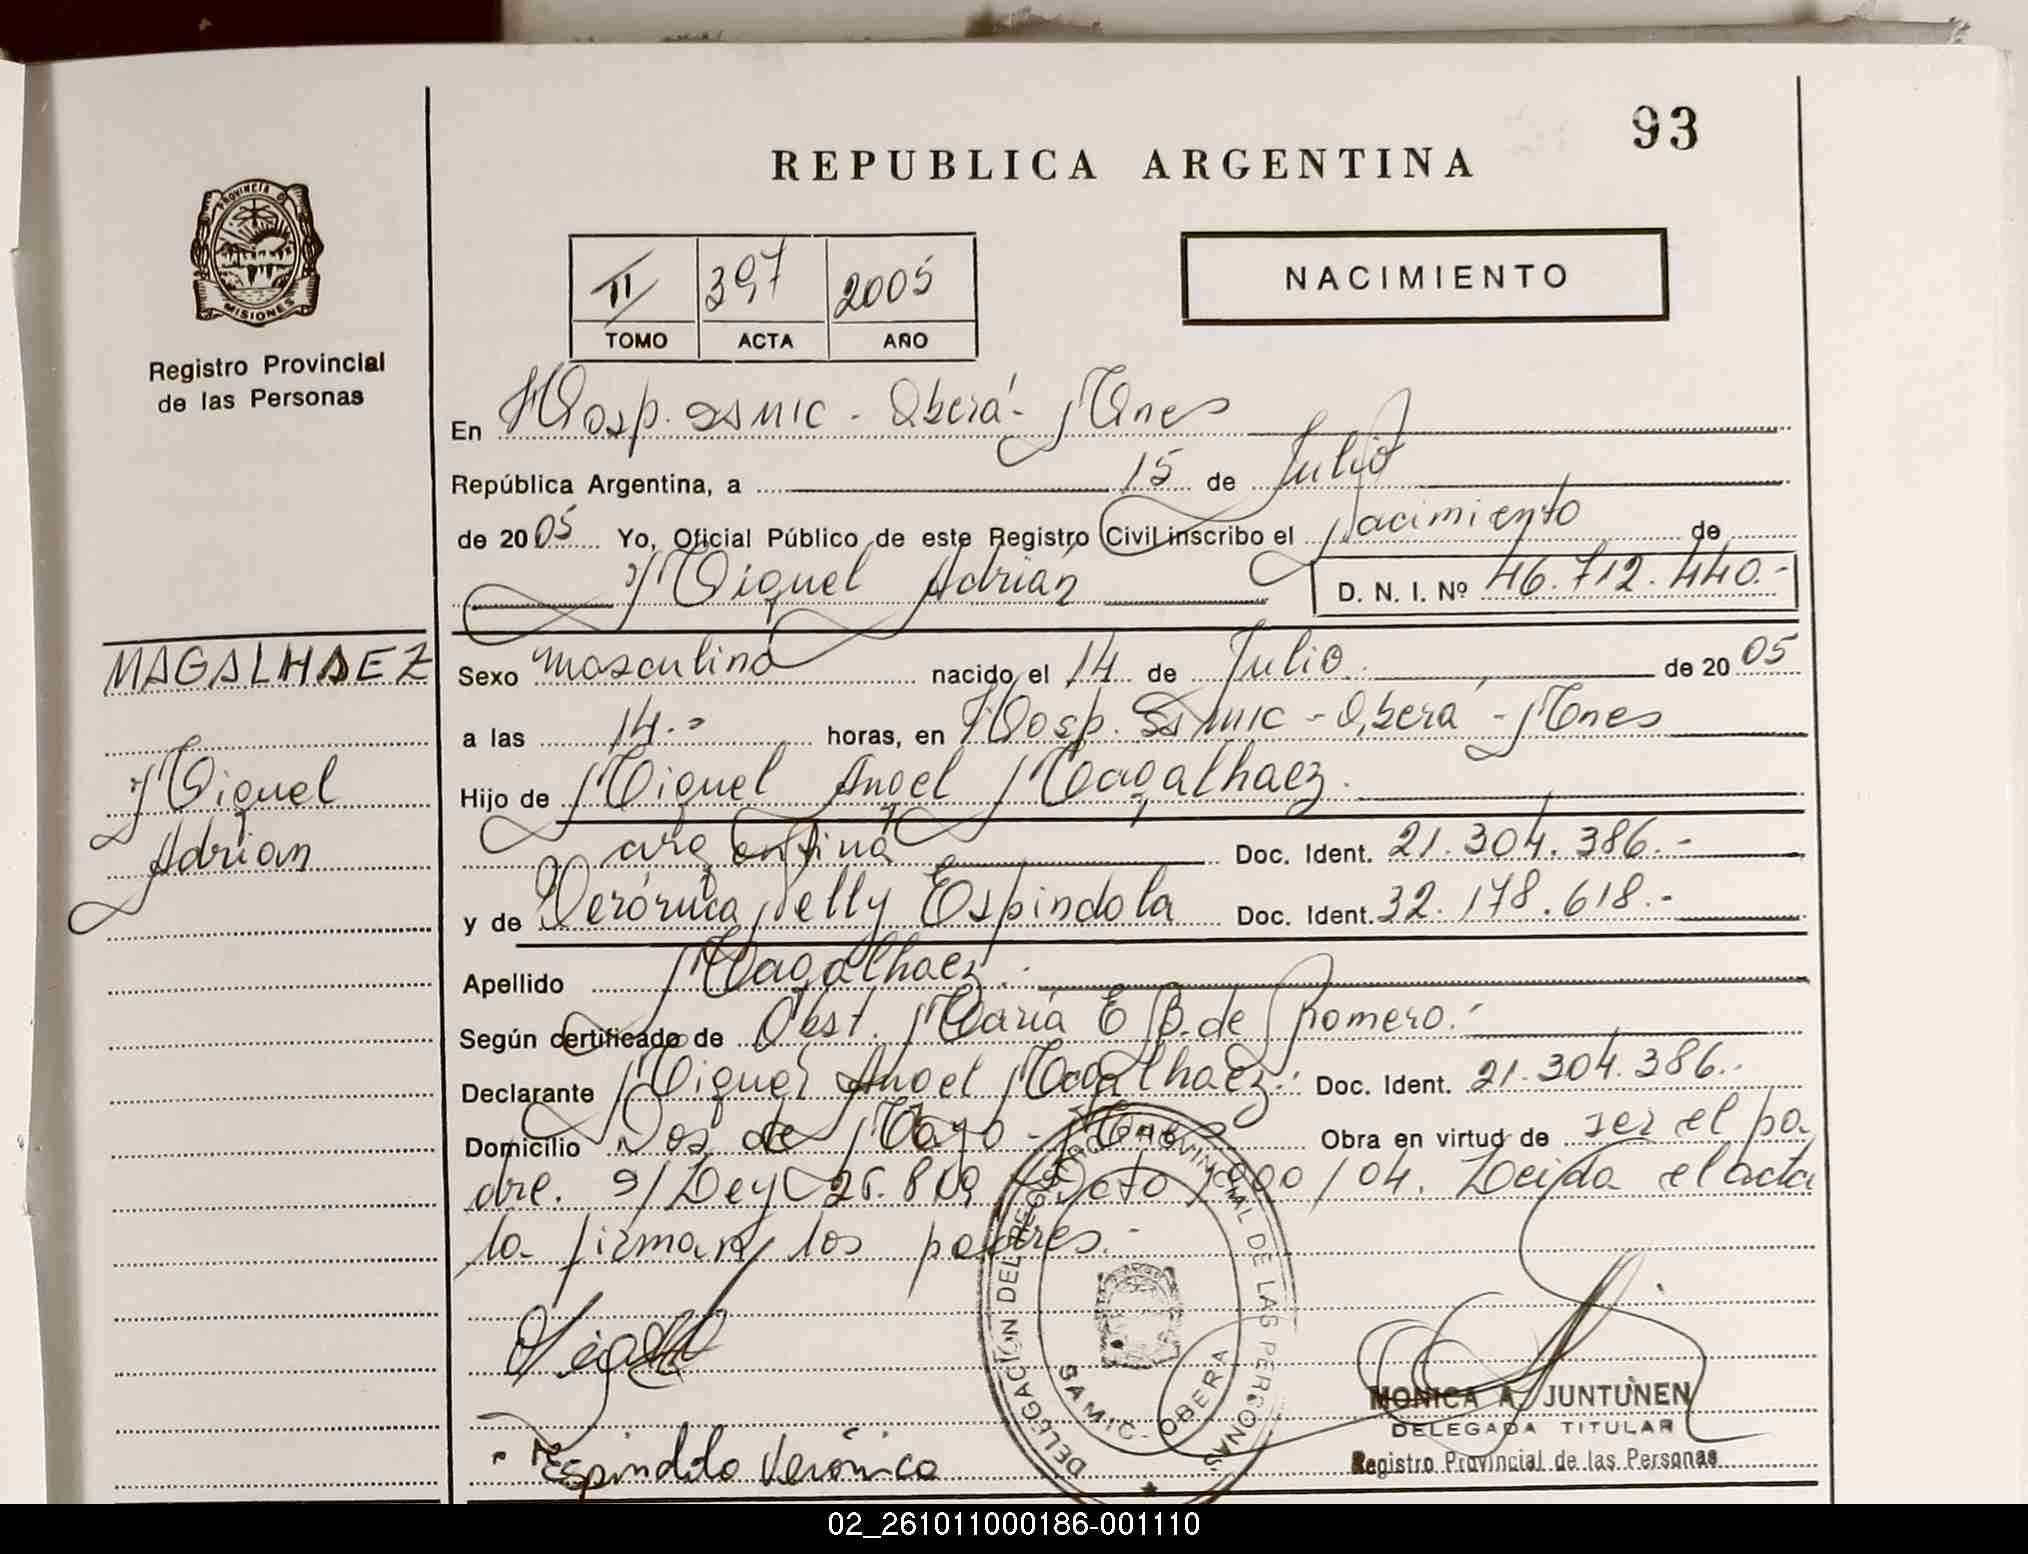 93
REPUBLICA ARGENTINA
PROVINCIA D
MISIONES
Registro Provincial
de las Personas
II 397 2005
TOMO ACTA AÑO
NACIMIENTO
En Hosp. SAMIC - Oberá - Mnes
República Argentina, a 15 de Julio
de 2005 Yo, Oficial Público de este Registro Civil inscribo el Nacimiento de
Miguel Adrián D. N. I. Nº 46.712.440.-
MAGALHAEZ
Miguel
Adrian
Sexo masculino nacido el 14 de Julio de 2005
a las 14.- horas, en Hosp. SAMIC - Oberá - Mnes
Hijo de Miguel Angel Magalhaez.
argentina Doc. Ident. 21.304.386.-
y de Verónica Nelly Espindola Doc. Ident. 32.178.618.-
Apellido Magalhaez.
Según certificado de Obst. María E B. de Romero.-
Declarante Miguel Angel Magalhaez.- Doc. Ident. 21.304.386.-
Domicilio Dos de Mayo - Mnes Obra en virtud de ser el pa
dre. s/Ley 25.819 Dcto 1900/04. Leida el acta
la firman los padres.-
Espindola Verónica
DELEGACIÓN DEL REGISTRO PROVINCIAL DE LAS PERSONAS
SAMIC - OBERA
MONICA A. JUNTUNEN
DELEGADA TITULAR
Registro Provincial de las Personas
02_261011000186-001110